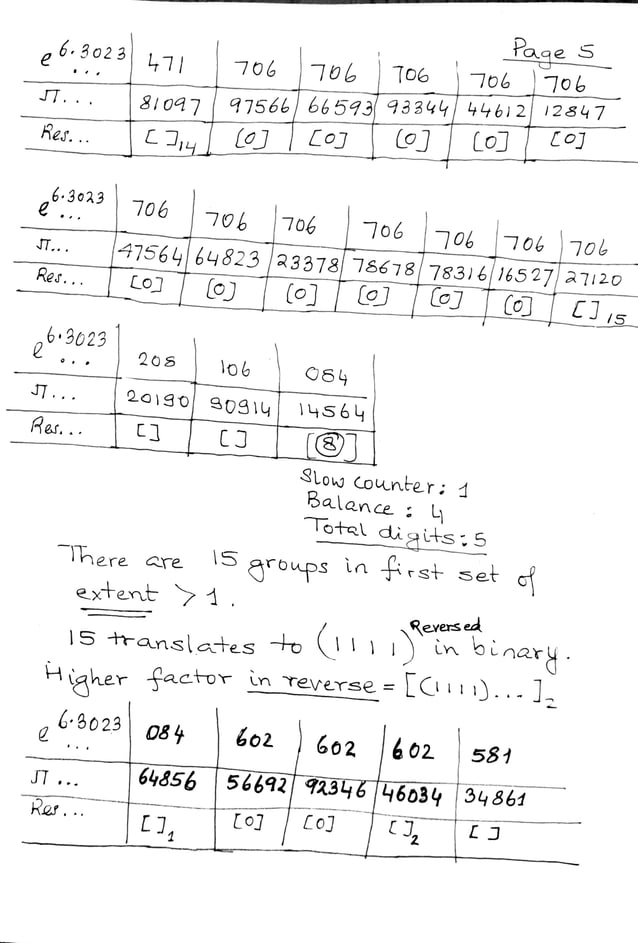 Page 5
e^6.3023 ... 471 706 706 706 706 706
π... 81097 97566 66593 93344 44612 12847
Res... [ ]14 [0] [0] [0] [0] [0]
e^6.3023 ... 706 706 706 706 706 706 706
π... 47564 64823 23378 78678 78316 16527 27120
Res... [0] [0] [0] [0] [0] [0] [ ]15
e^6.3023 ... 208 106 084
π... 20190 90914 14564
Res... [ ] [ ] [8]
Slow counter: 1
Balance : 4
Total digits: 5
There are 15 groups in first set of
extent > 1.
15 translates to (1111)Reversed in binary.
Higher factor in reverse = [(1111)...]2
e^6.3023 ... 084 602 602 602 581
π ... 64856 56692 92346 46034 34861
Res... [ ]1 [0] [0] [ ]2 [ ]